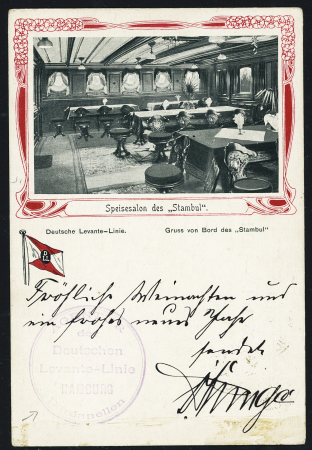 Speisesalon des „Stambul“.
Deutsche Levante-Linie. Gruss von Bord des „Stambul“
D L L
Fröhliche Weinachten und
ein frohes neues Jahr
sendet
der
Deutschen
Levante-Linie
HAMBURG
Dardanellen